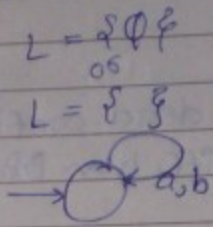 L = {Φ}
or
L = { }
a,b